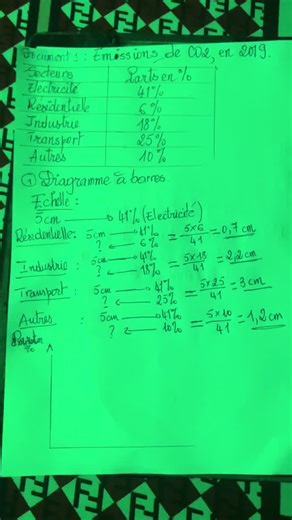 Document : Emissions de CO2, en 2019.
Secteurs Parts en %
Electricité 41%
Résidentielle 6%
Industrie 18%
Transport 25%
Autres 10%
① Diagramme à barres.
Echelle :
5cm → 41% (Electricité)
Résidentielle: 5cm → 41%
? ← 6% = 5x6/41 = 0,7 cm
Industrie : 5cm → 41%
? ← 18% = 5x18/41 = 2,2 cm
Transport : 5cm → 41%
? ← 25% = 5x25/41 = 3 cm
Autres : 5cm → 41%
? ← 10% = 5x10/41 = 1,2 cm
%